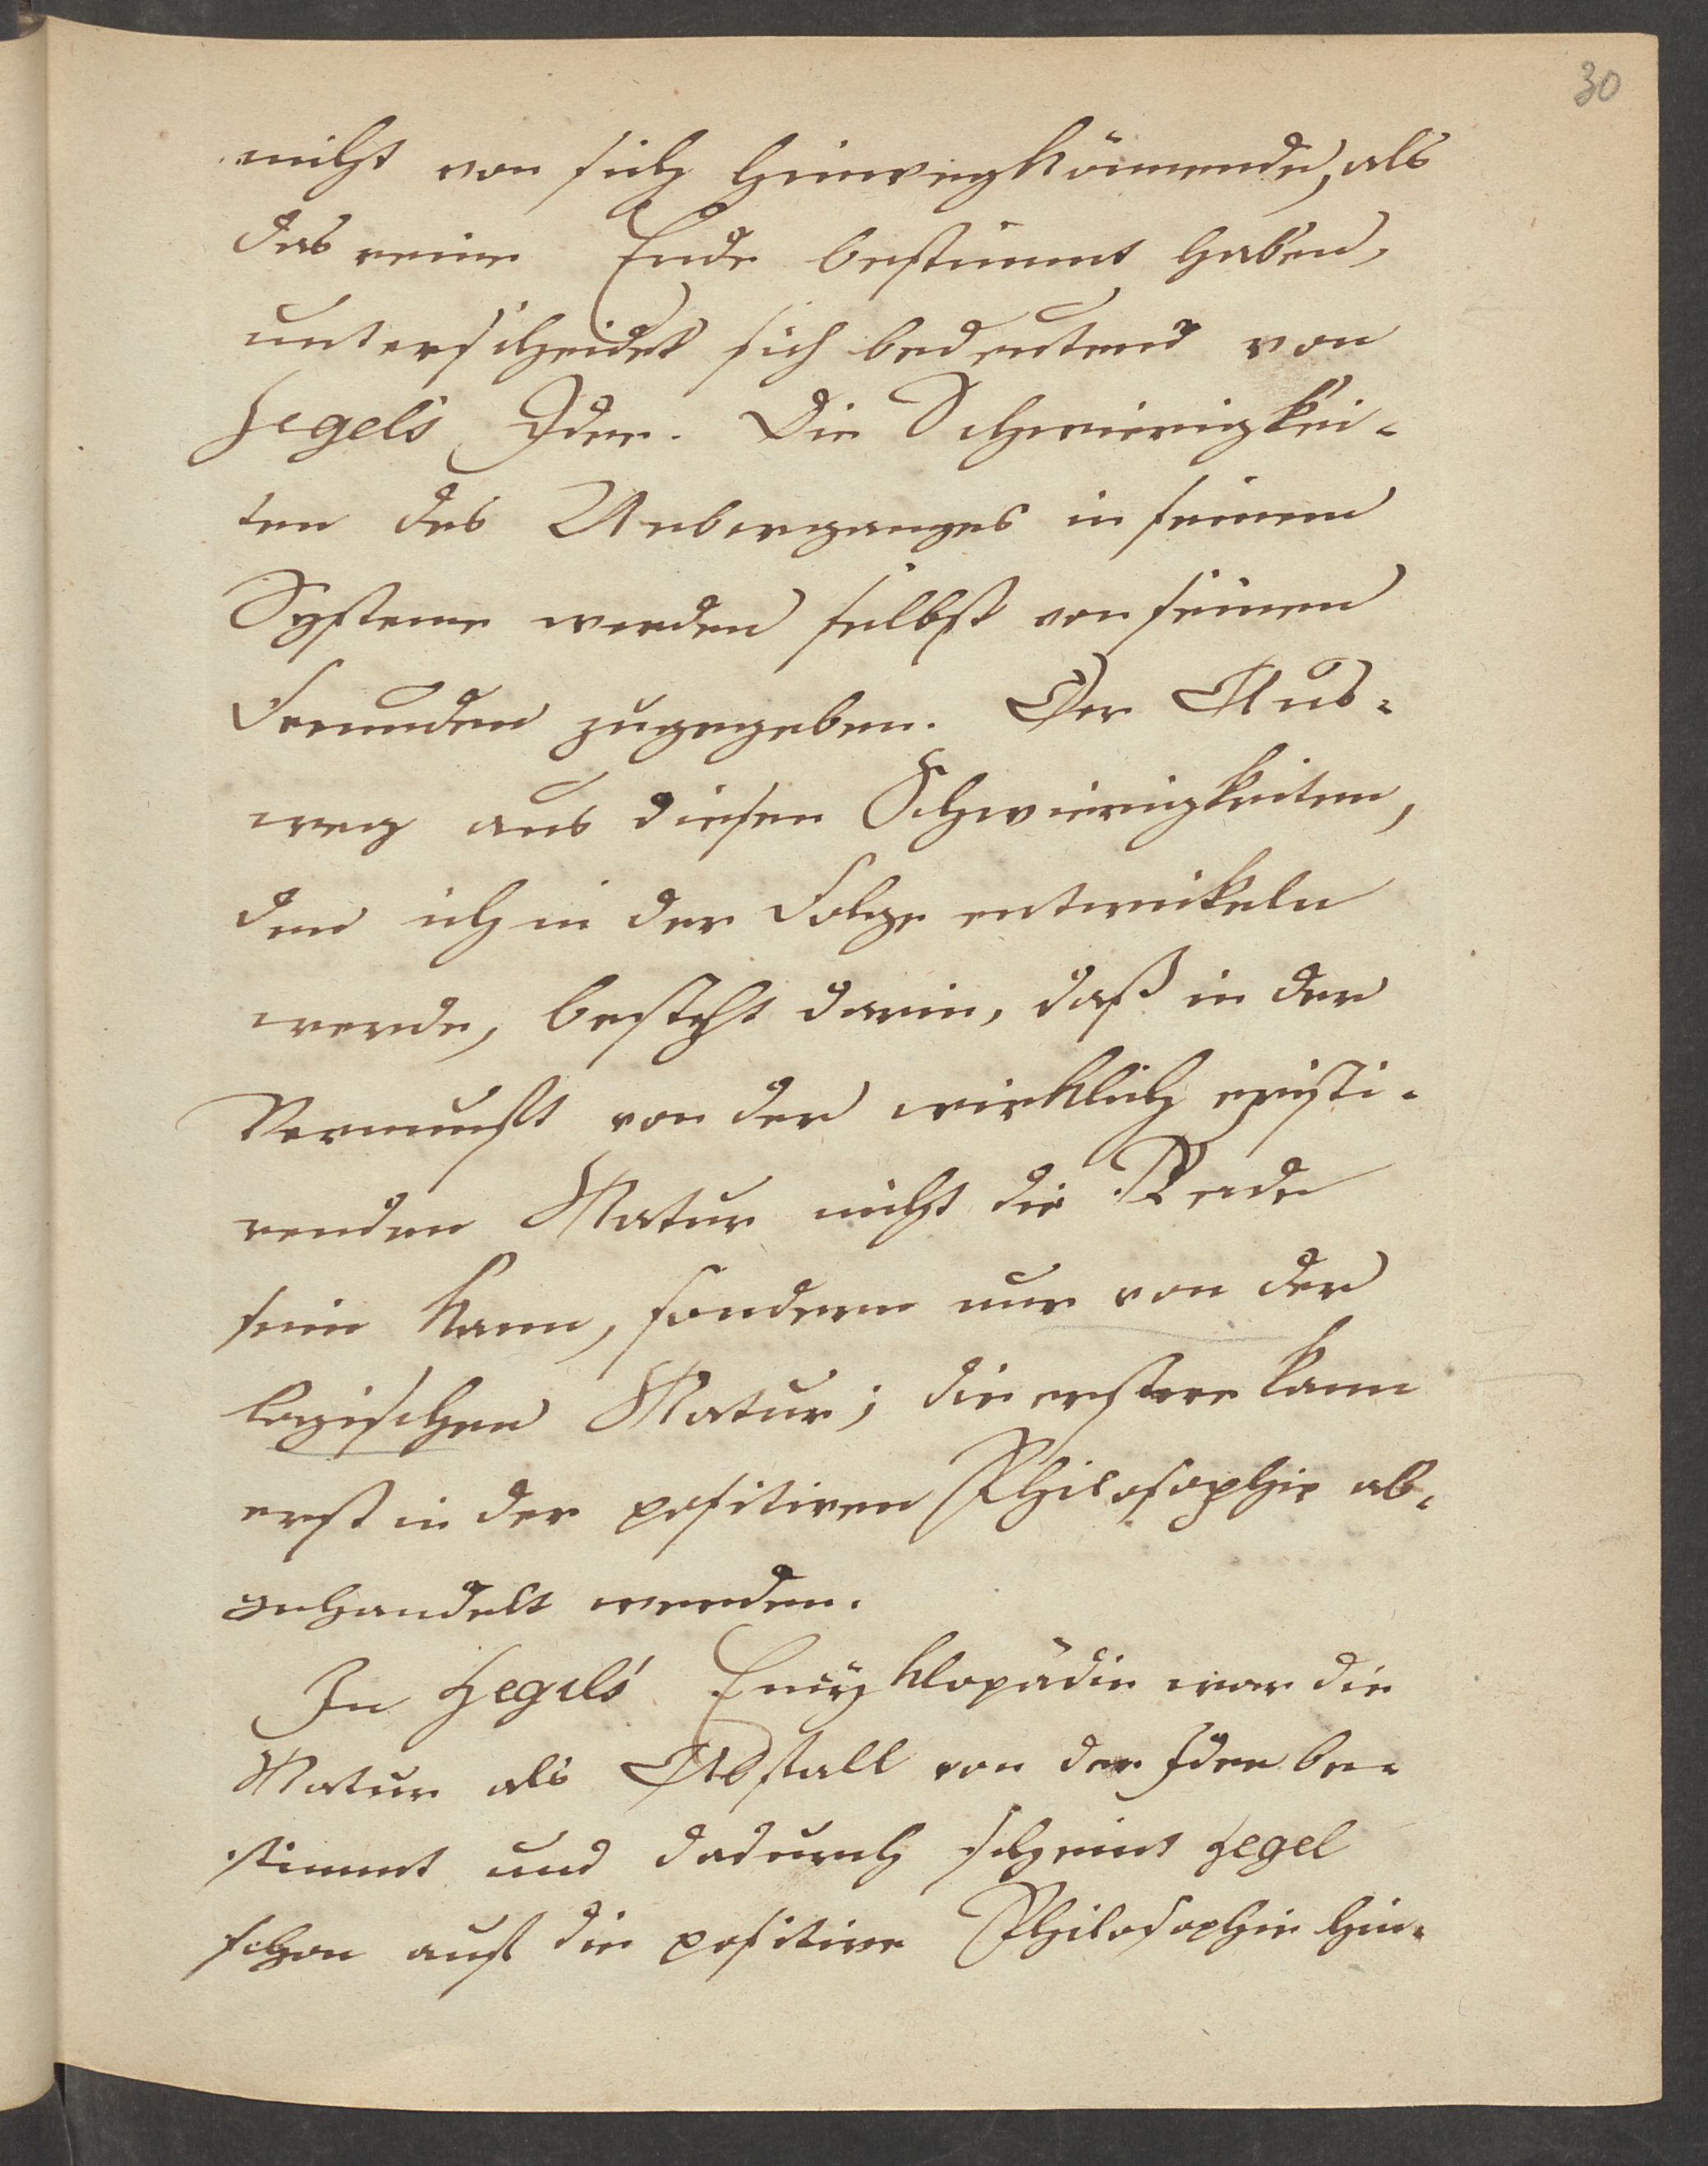 30
nicht von sich hinwegkönnende, als
das reine Ende bestimmt haben,
unterscheidet sich bedeutend von
Hegels Idee. Die Schwierigkei-
ten des Ueberganges in seinem
Systeme werden selbst von seinen
Freunden zugegeben. Der Aus-
weg aus diesen Schwierigkeiten,
den ich in der Folge entwickeln
werde, besteht darin, daß in der
Vernunft von der wirklich existi-
renden Natur nicht die Rede
sein kann, sondern nur von der
logischen Natur; die erstere kann
erst in der positiven Philosophie ab-
gehandelt werden.
In Hegels Encyklopädie war die
Natur als Abfall von der Idee be-
stimmt und dadurch scheint Hegel
schon auf die positive Philosophie hin-